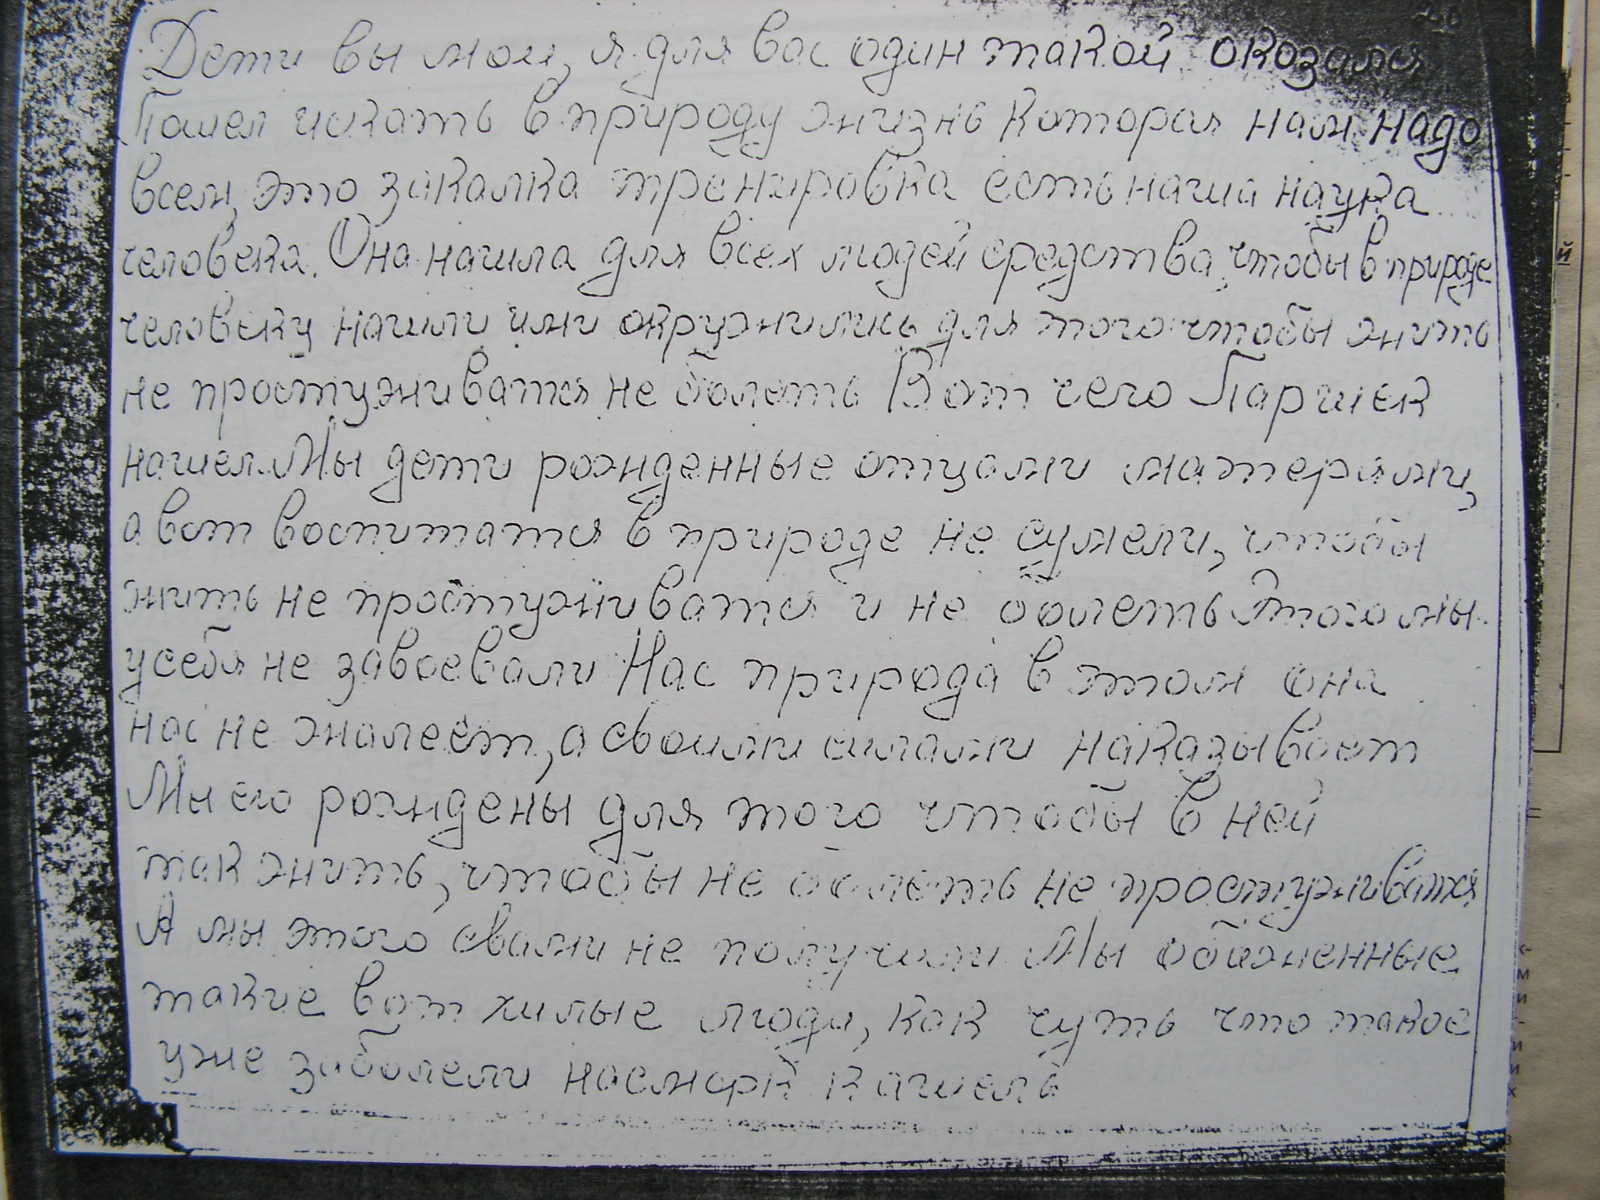 Дети вы мои, я для вас один такой оказался
Пошел искать в природу жизнь которая нам надо
всем, это закалка тренировка есть наша наука
человека. Она нашла для всех людей средства, чтобы в природе
человеку нашли ими окружились для того чтобы жить
не простуживатся не болеть Вот чего Паршек
нашел. Мы дети рожденные отцами матерями,
а вот воспитатся в природе не сумели, чтобы
жить не простуживатся и не болеть Этого мы
у себя не завоевали Нас природа в этом она
нас не жалеет, а своими силами наказывает
Мы его рождены для того чтобы в ней
так жить, чтобы не болеть не простуживатся
А мы этого свами не получили Мы обиженные
такие вот хилые люди, как чуть что такое
уже заболели насморк кашель
й